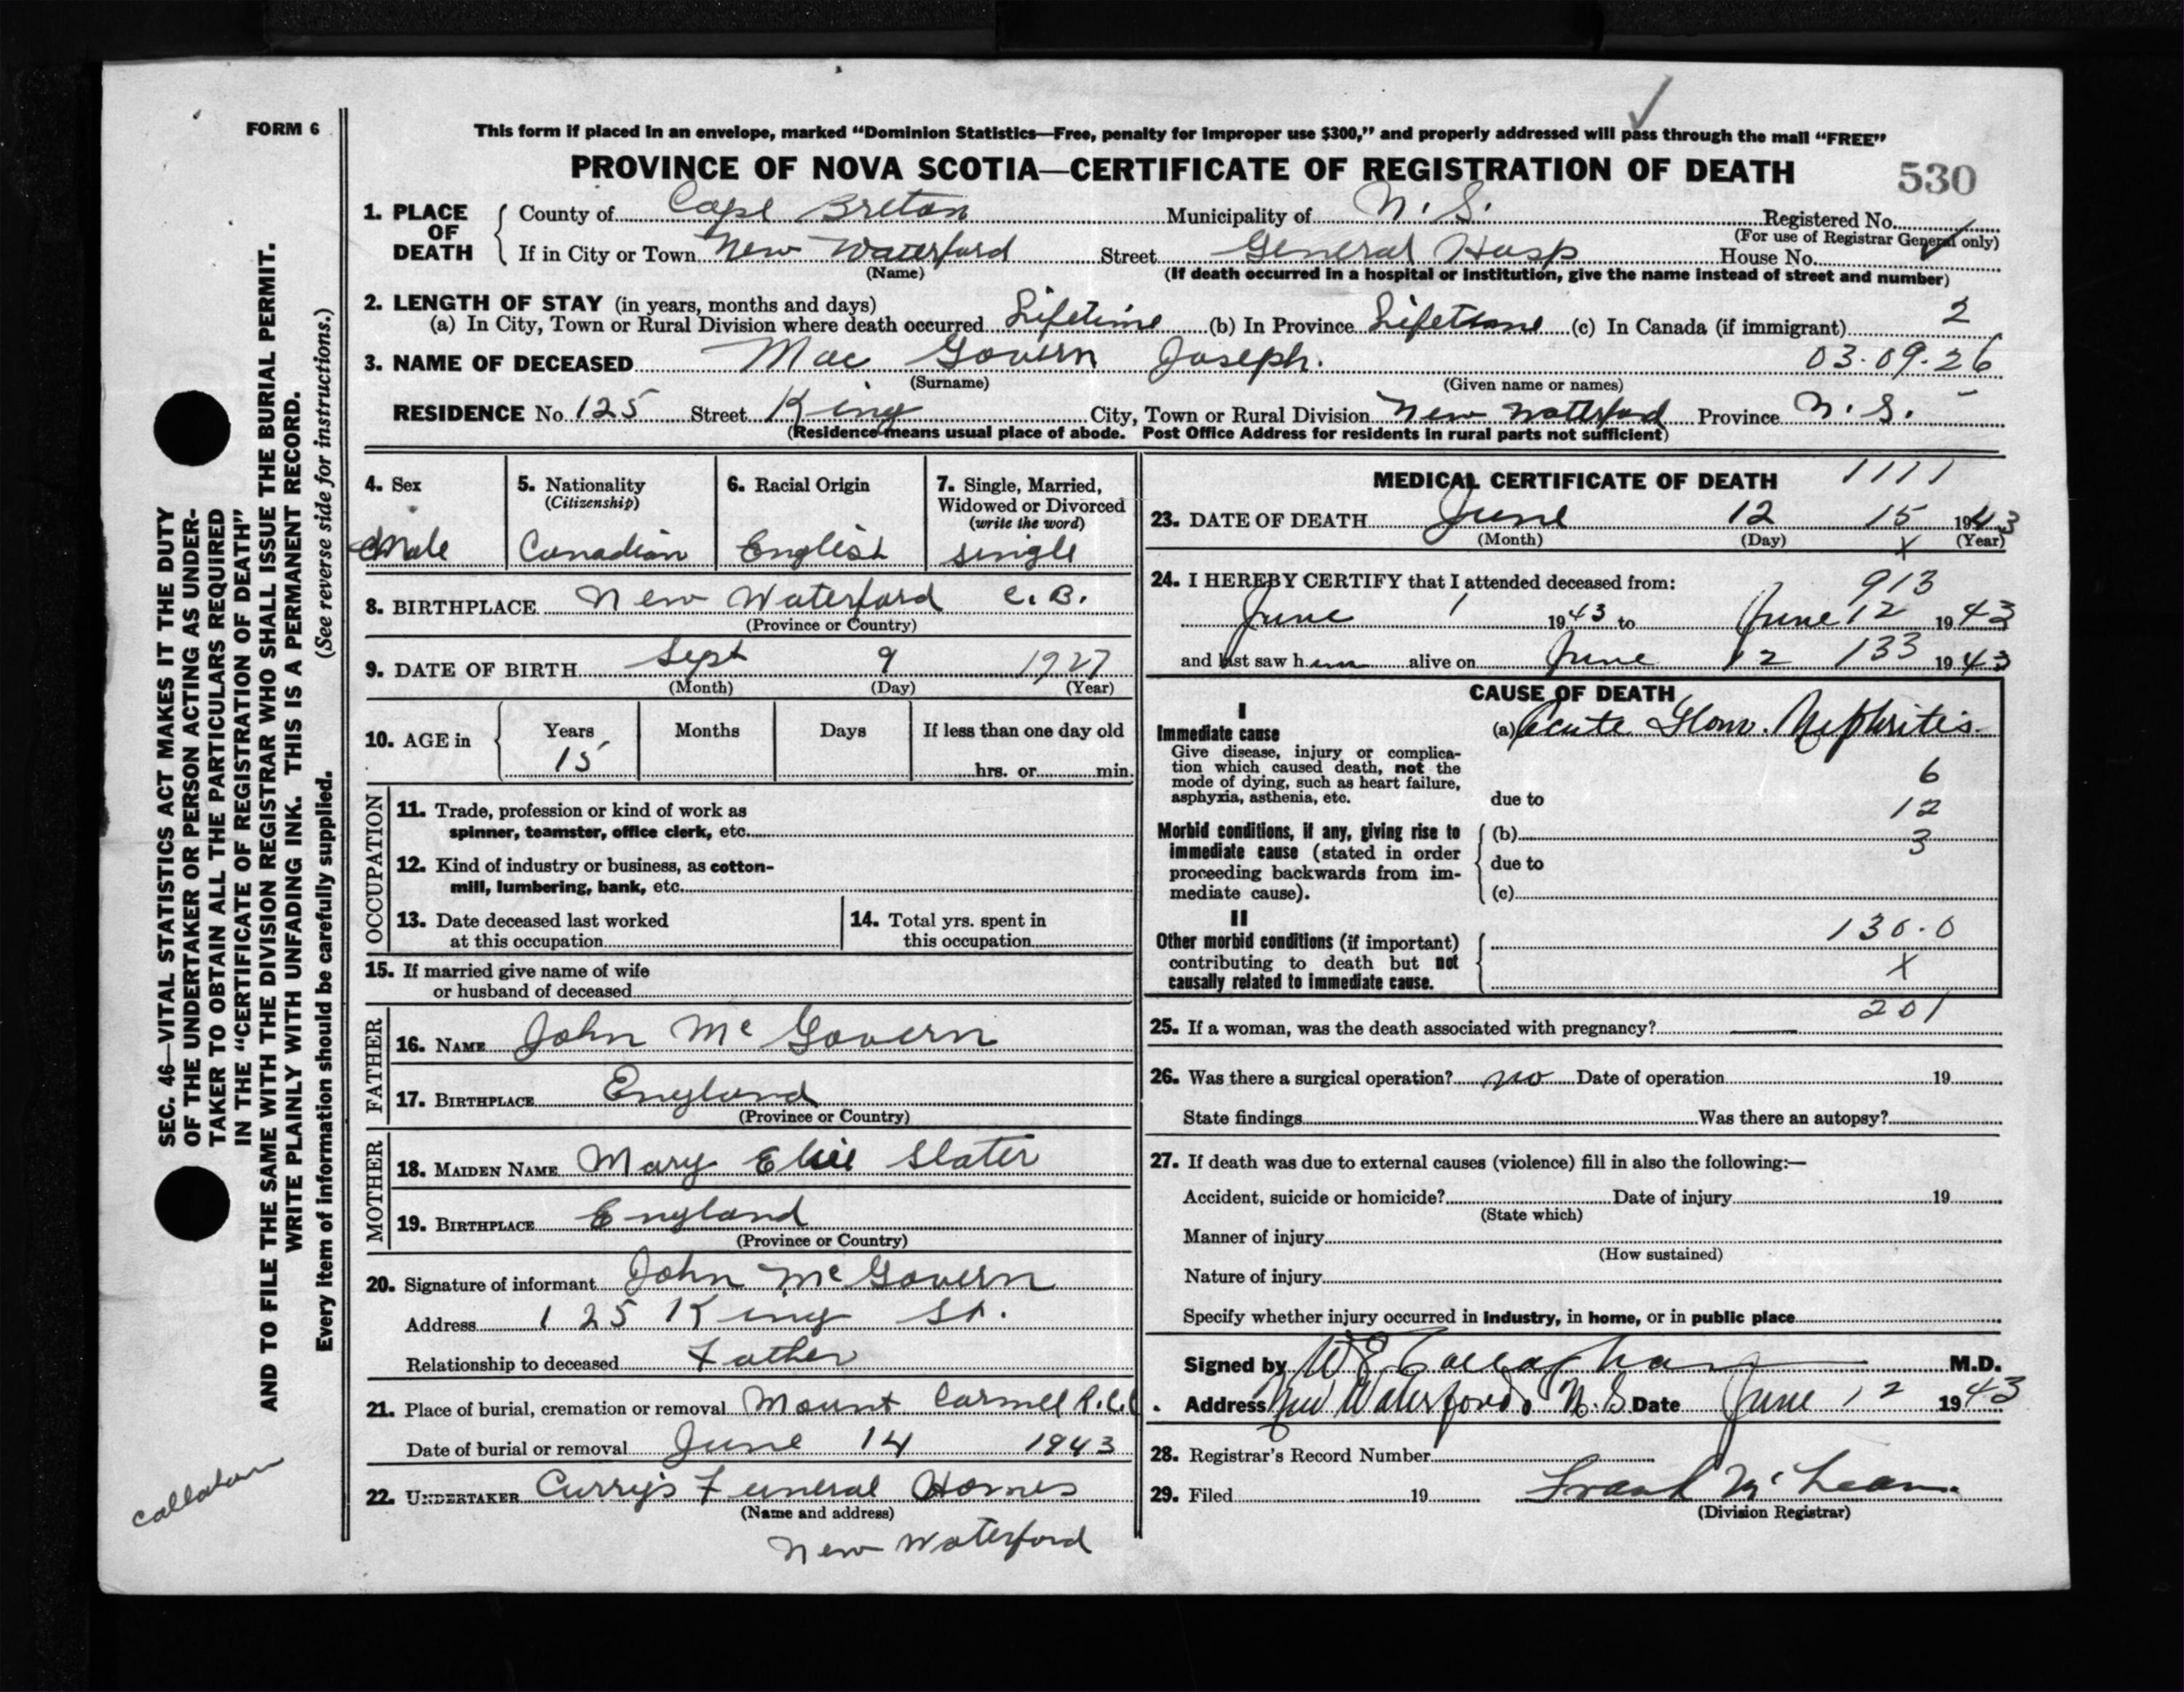 FORM 6
This form if placed in an envelope, marked “Dominion Statistics—Free, penalty for improper use $300,” and properly addressed will pass through the mail “FREE”
PROVINCE OF NOVA SCOTIA—CERTIFICATE OF REGISTRATION OF DEATH 530
1. PLACE OF DEATH County of Cape Breton Municipality of N. S. Registered No.
(For use of Registrar General only)
If in City or Town New Waterford Street General Hosp House No.
(Name) (If death occurred in a hospital or institution, give the name instead of street and number)
2. LENGTH OF STAY (in years, months and days)
(a) In City, Town or Rural Division where death occurred Lifetime (b) In Province Lifetime (c) In Canada (if immigrant) 2
3. NAME OF DECEASED Mac Govern Joseph. 03.09.26
(Surname) (Given name or names)
RESIDENCE No. 125 Street King City, Town or Rural Division New Waterford Province N. S.
(Residence means usual place of abode. Post Office Address for residents in rural parts not sufficient)
4. Sex 5. Nationality 6. Racial Origin 7. Single, Married,
(Citizenship) Widowed or Divorced
(write the word)
Male Canadian English single
8. BIRTHPLACE New Waterford C. B.
(Province or Country)
9. DATE OF BIRTH Sept 9 1927
(Month) (Day) (Year)
10. AGE in Years Months Days If less than one day old
15 hrs. or min.
OCCUPATION
11. Trade, profession or kind of work as
spinner, teamster, office clerk, etc.
12. Kind of industry or business, as cotton-
mill, lumbering, bank, etc.
13. Date deceased last worked 14. Total yrs. spent in
at this occupation this occupation
15. If married give name of wife
or husband of deceased
FATHER
16. NAME John Mc Govern
17. BIRTHPLACE England
(Province or Country)
MOTHER
18. MAIDEN NAME Mary Slater
19. BIRTHPLACE England
(Province or Country)
20. Signature of informant John Mc Govern
Address 125 King St.
Relationship to deceased Father
21. Place of burial, cremation or removal Mount Carmel R.C.C.
Date of burial or removal June 14 1943
22. UNDERTAKER Curry's Funeral Homes
(Name and address)
New Waterford
MEDICAL CERTIFICATE OF DEATH 1111
23. DATE OF DEATH June 12 15 1943
(Month) (Day) X (Year)
24. I HEREBY CERTIFY that I attended deceased from:
913
June 1 1943 to June 12 1943
and last saw him alive on June 12 133 1943
CAUSE OF DEATH
I
Immediate cause (a) Acute Glom. Nephritis
Give disease, injury or complica-
tion which caused death, not the
mode of dying, such as heart failure,
asphyxia, asthenia, etc. due to
6
12
3
Morbid conditions, if any, giving rise to (b)
immediate cause (stated in order
proceeding backwards from im- due to
mediate cause). (c)
II
Other morbid conditions (if important) 130.0
contributing to death but not
causally related to immediate cause. X
201
25. If a woman, was the death associated with pregnancy? —
26. Was there a surgical operation? no Date of operation 19
State findings Was there an autopsy?
27. If death was due to external causes (violence) fill in also the following:—
Accident, suicide or homicide? Date of injury 19
(State which)
Manner of injury
(How sustained)
Nature of injury
Specify whether injury occurred in industry, in home, or in public place
Signed by W E Callaghan M.D.
Address New Waterford, N.S. Date June 12 1943
28. Registrar’s Record Number
29. Filed 19 Frank McLean
(Division Registrar)
SEC. 46—VITAL STATISTICS ACT MAKES IT THE DUTY
OF THE UNDERTAKER OR PERSON ACTING AS UNDER-
TAKER TO OBTAIN ALL THE PARTICULARS REQUIRED
IN THE “CERTIFICATE OF REGISTRATION OF DEATH”
AND TO FILE THE SAME WITH THE DIVISION REGISTRAR WHO SHALL ISSUE THE BURIAL PERMIT.
WRITE PLAINLY WITH UNFADING INK. THIS IS A PERMANENT RECORD.
Every item of information should be carefully supplied. (See reverse side for instructions.)